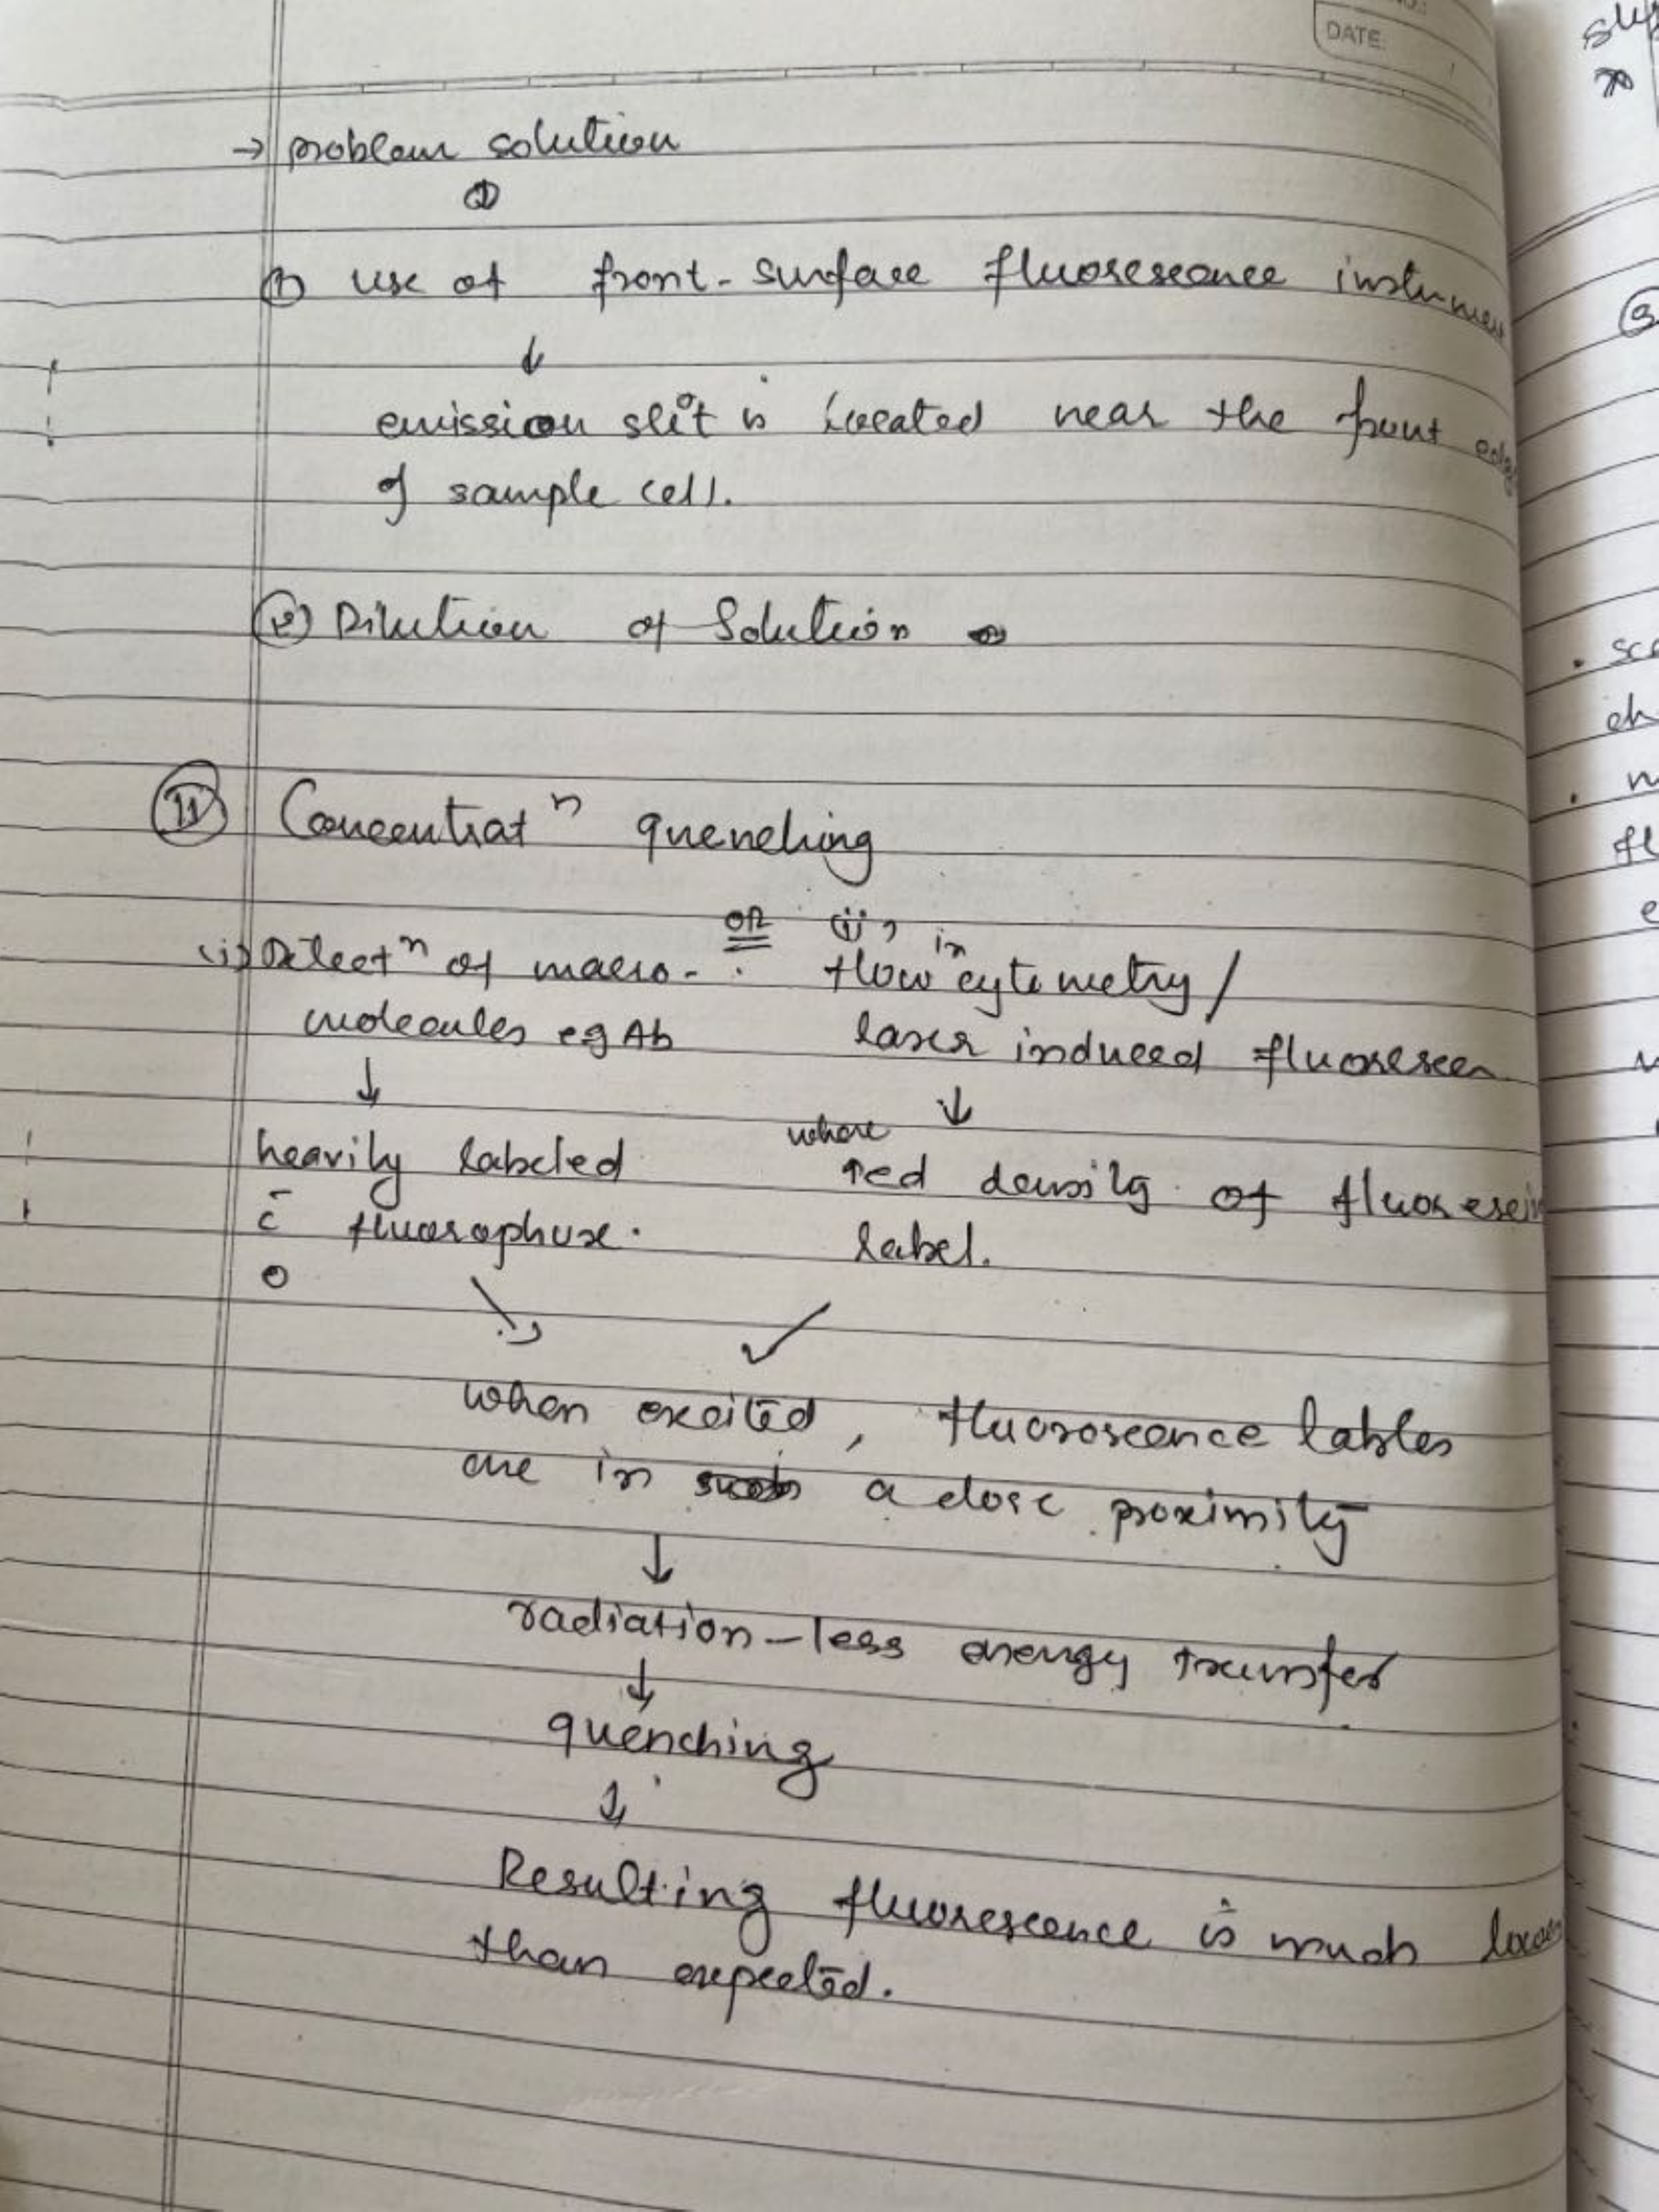 DATE:
→ problem solution
① use of front-surface fluorescence instrumen
↓
emission slit is located near the front edg
of sample cell.
② Dilution of Solution
Ⅱ Concentratⁿ quenching
(i) Detectⁿ of macro-
molecules eg Ab
↓
heavily labeled
c̄ fluorophore.
OR
(ii) in flow cytometry/
laser induced fluorescen
↓
where ↑ed density of fluorescein
label.
when excited, fluoroscence lables
are in a close proximity
↓
radiation-less energy transfer
↓
quenching
↓
Resulting fluorescence is much lower
than expected.